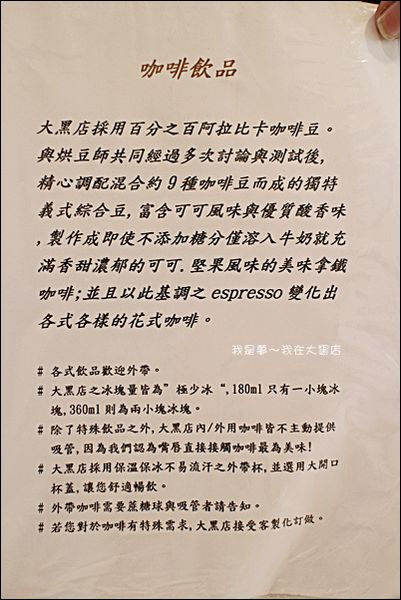 咖啡飲品
大黑店採用百分之百阿拉比卡咖啡豆。
與烘豆師共同經過多次討論與測試後,
精心調配混合約 9 種咖啡豆而成的獨特
義式綜合豆,富含可可風味與優質酸香味
,製作成即使不添加糖分僅溶入牛奶就充
滿香甜濃郁的可可.堅果風味的美味拿鐵
咖啡;並且以此基調之 espresso 變化出
各式各樣的花式咖啡。
我是夢～我在大黑店
# 各式飲品歡迎外帶。
# 大黑店之冰塊量皆為”極少冰“,180ml 只有一小塊冰
塊,360ml 則為兩小塊冰塊。
# 除了特殊飲品之外,大黑店內/外用咖啡皆不主動提供
吸管,因為我們認為嘴唇直接接觸咖啡最為美味!
# 大黑店採用保溫保冰不易流汗之外帶杯,並選用大開口
杯蓋,讓您舒適暢飲。
# 外帶咖啡需要蔗糖球與吸管者請告知。
# 若您對於咖啡有特殊需求,大黑店接受客製化訂做。